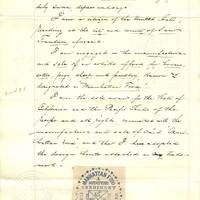 duly sworn deposes and says
I am a citizen of the United States
residing at the city and county of San
Francisco aforesaid
I am engaged in the manufacture
and sale of an article of food for horses,
cattle, hogs, sheep and poultry known &
designated as "Manhattan Food"
I am the sole owner for the State of
California and the Pacific States of the
and all rights connected with the
manufacture and sale of said Man-
hattan Food and that I have adopted
the design hereto attached as my trade-
mark.
MANHATTAN FOOD